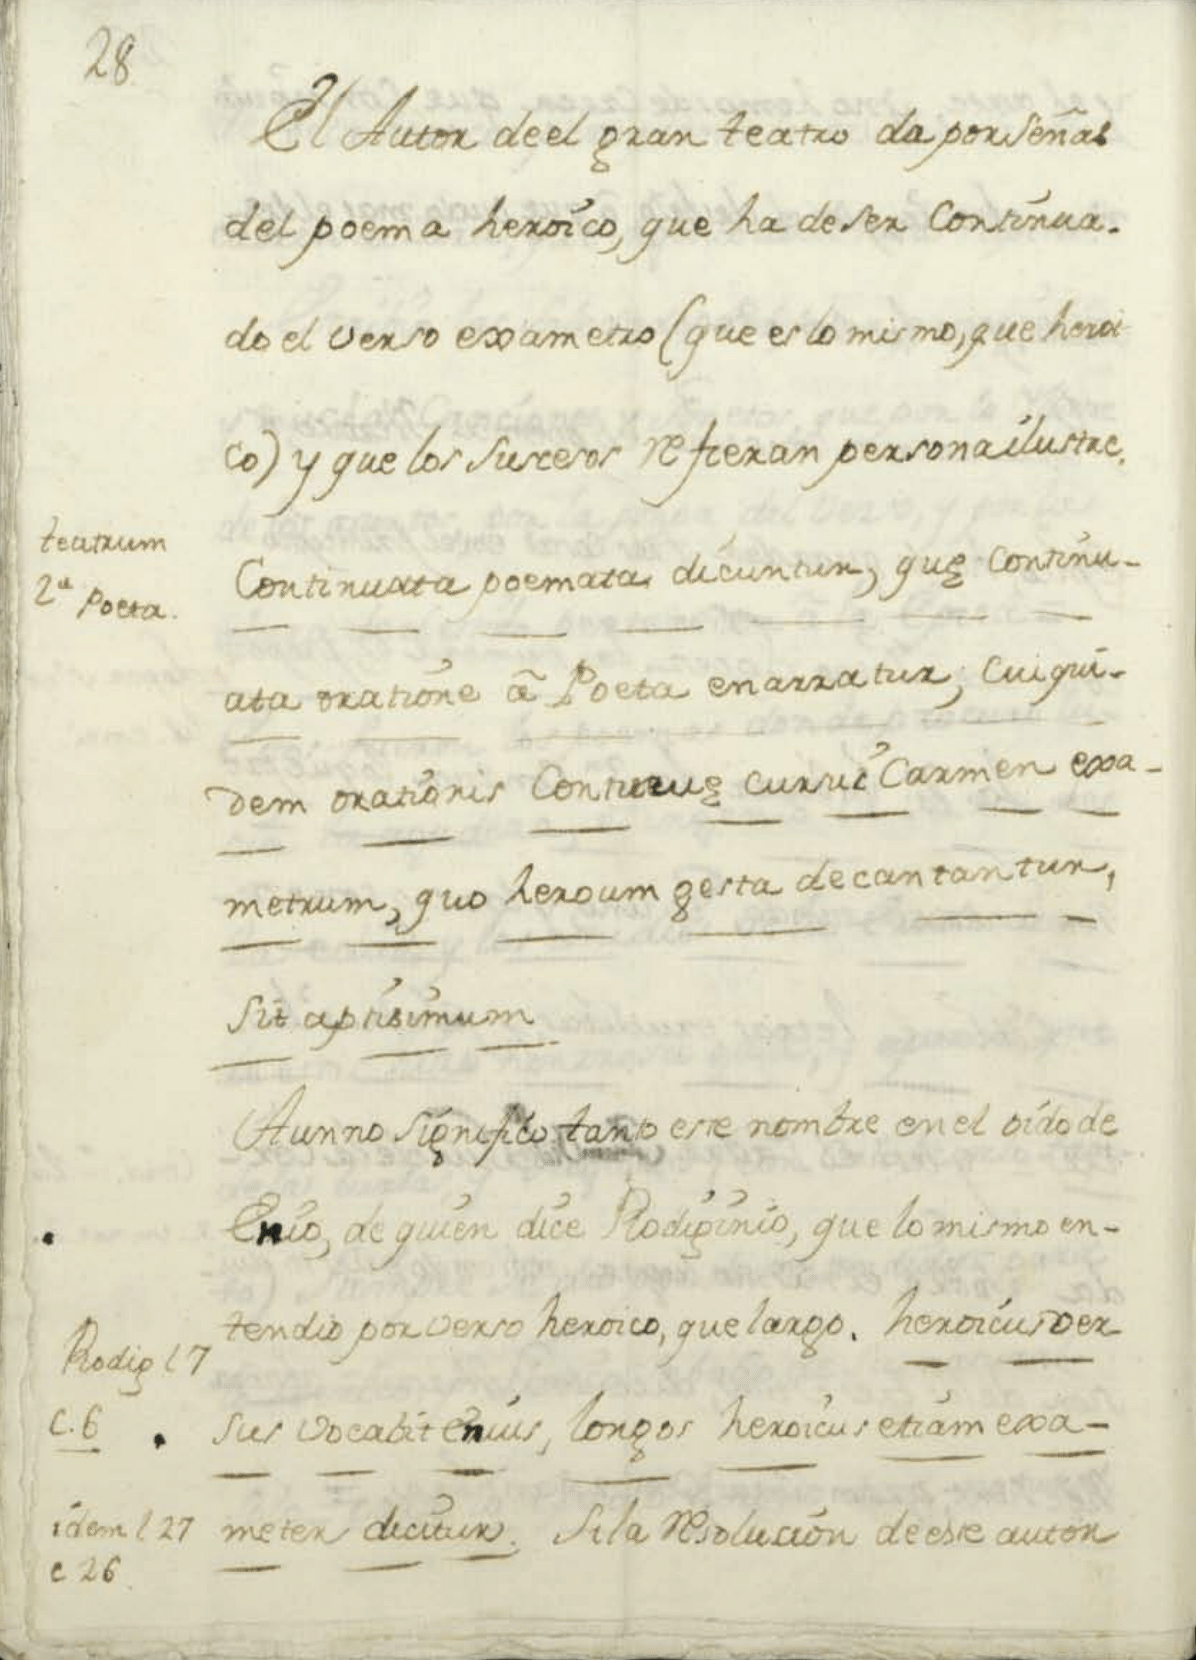 28
El Autor de el gran teatro da por señas
del poema heroico, que ha de ser Continua-
do el verso exametro (que es lo mismo, que heroi
co) y que los sucesos refieran persona ilustre.
teatrum
2ª Poeta.
Continuata poemata dicuntur, quę Continu-
ata oratione â Poeta enarratur, Cui qui-
dem orationis Continuę cursui Carmen exa-
metrum, quo heroum gesta decantantur,
sit aptisimum
Aun no significo tanto este nombre en el oido de
Enio, de quien dice Rodiginio, que lo mismo en-
tendio por verso heroico, que largo. heroicus ver
Rodig l 7
c. 6
sus vocabit enius, longos heroicus etiam exa-
idem l 27
c 26
meter dicitur. Si la resolucion de este autor